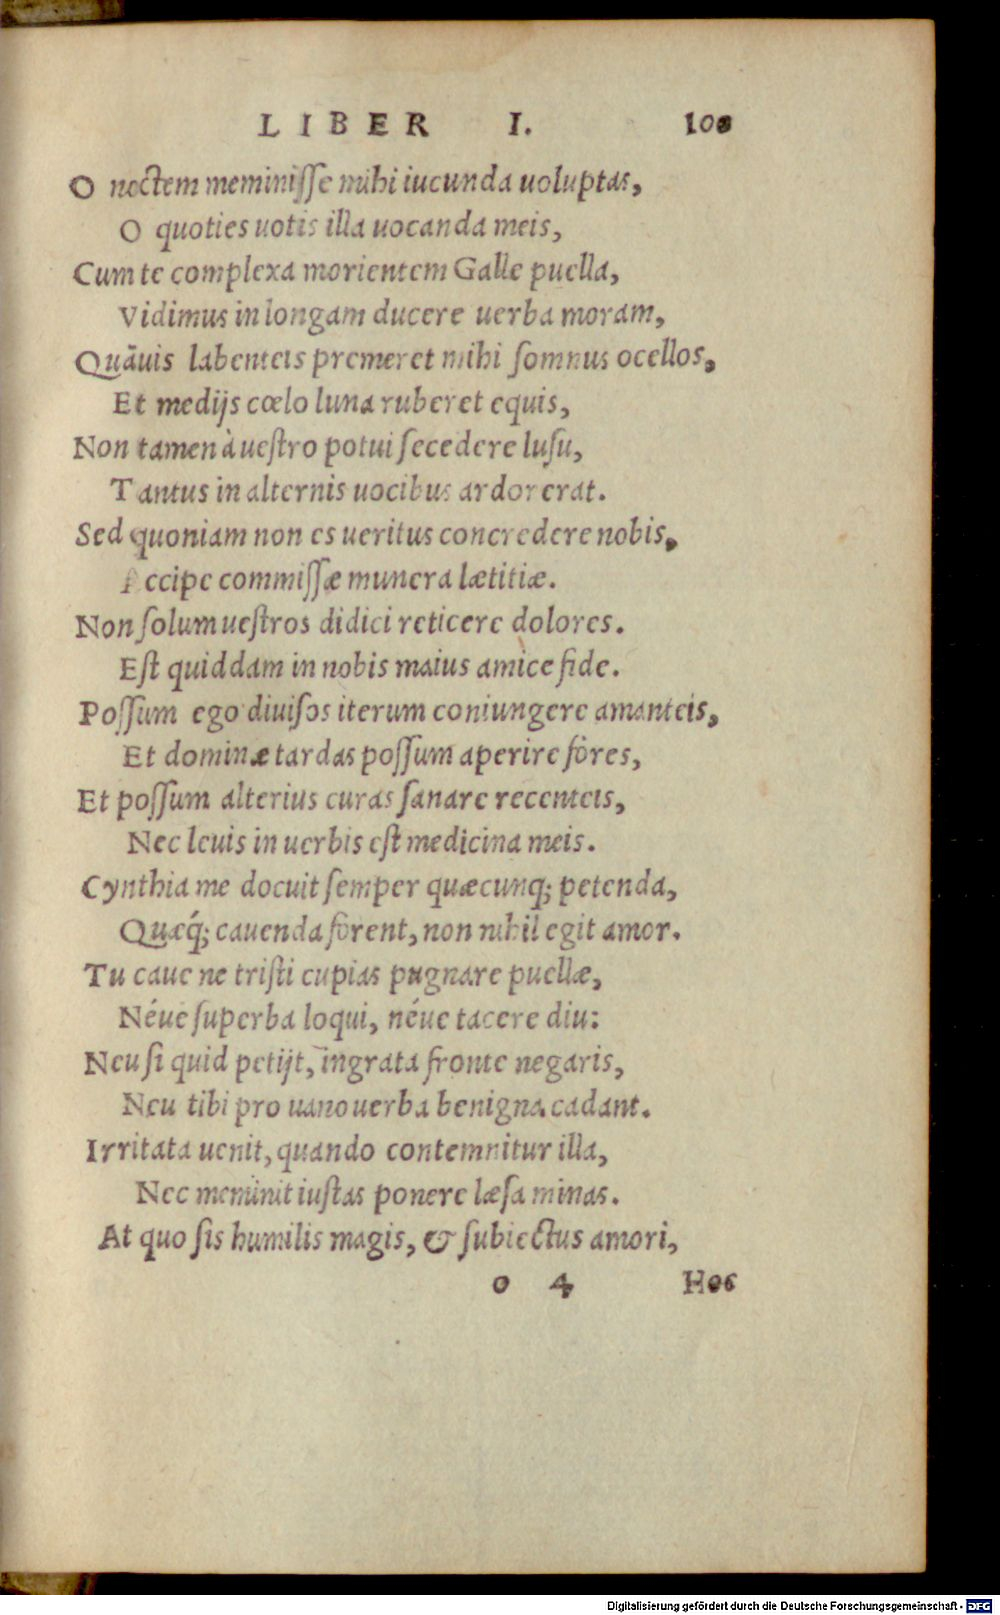 LIBER I. 108
O noctem meminisse mihi iucunda uoluptas,
O quoties uotis illa uocanda meis,
Cum te complexa morientem Galle puella,
Vidimus in longam ducere uerba moram,
Quãuis labenteis premeret mihi somnus ocellos,
Et medijs cœlo luna ruberet equis,
Non tamen à uestro potui secedere lusu,
Tantus in alternis uocibus ardor erat.
Sed quoniam non es ueritus concredere nobis,
Accipe commissæ munera lætitiæ.
Non solum uestros didici reticere dolores.
Est quiddam in nobis maius amice fide.
Possum ego diuisos iterum coniungere amanteis,
Et dominæ tardas possum aperire fores,
Et possum alterius curas sanare recenteis,
Nec leuis in uerbis est medicina meis.
Cynthia me docuit semper quæcunq; petenda,
Quæq́; cauenda forent, non nihil egit amor.
Tu caue ne tristi cupias pugnare puellæ,
Néue superba loqui, néue tacere diu:
Neu si quid petijt, ingrata fronte negaris,
Neu tibi pro uano uerba benigna cadant.
Irritata uenit, quando contemnitur illa,
Nec meminit iustas ponere læsa minas.
At quo sis humilis magis, & subiectus amori,
o 4 Hoc
Digitalisierung gefördert durch die Deutsche Forschungsgemeinschaft - DFG